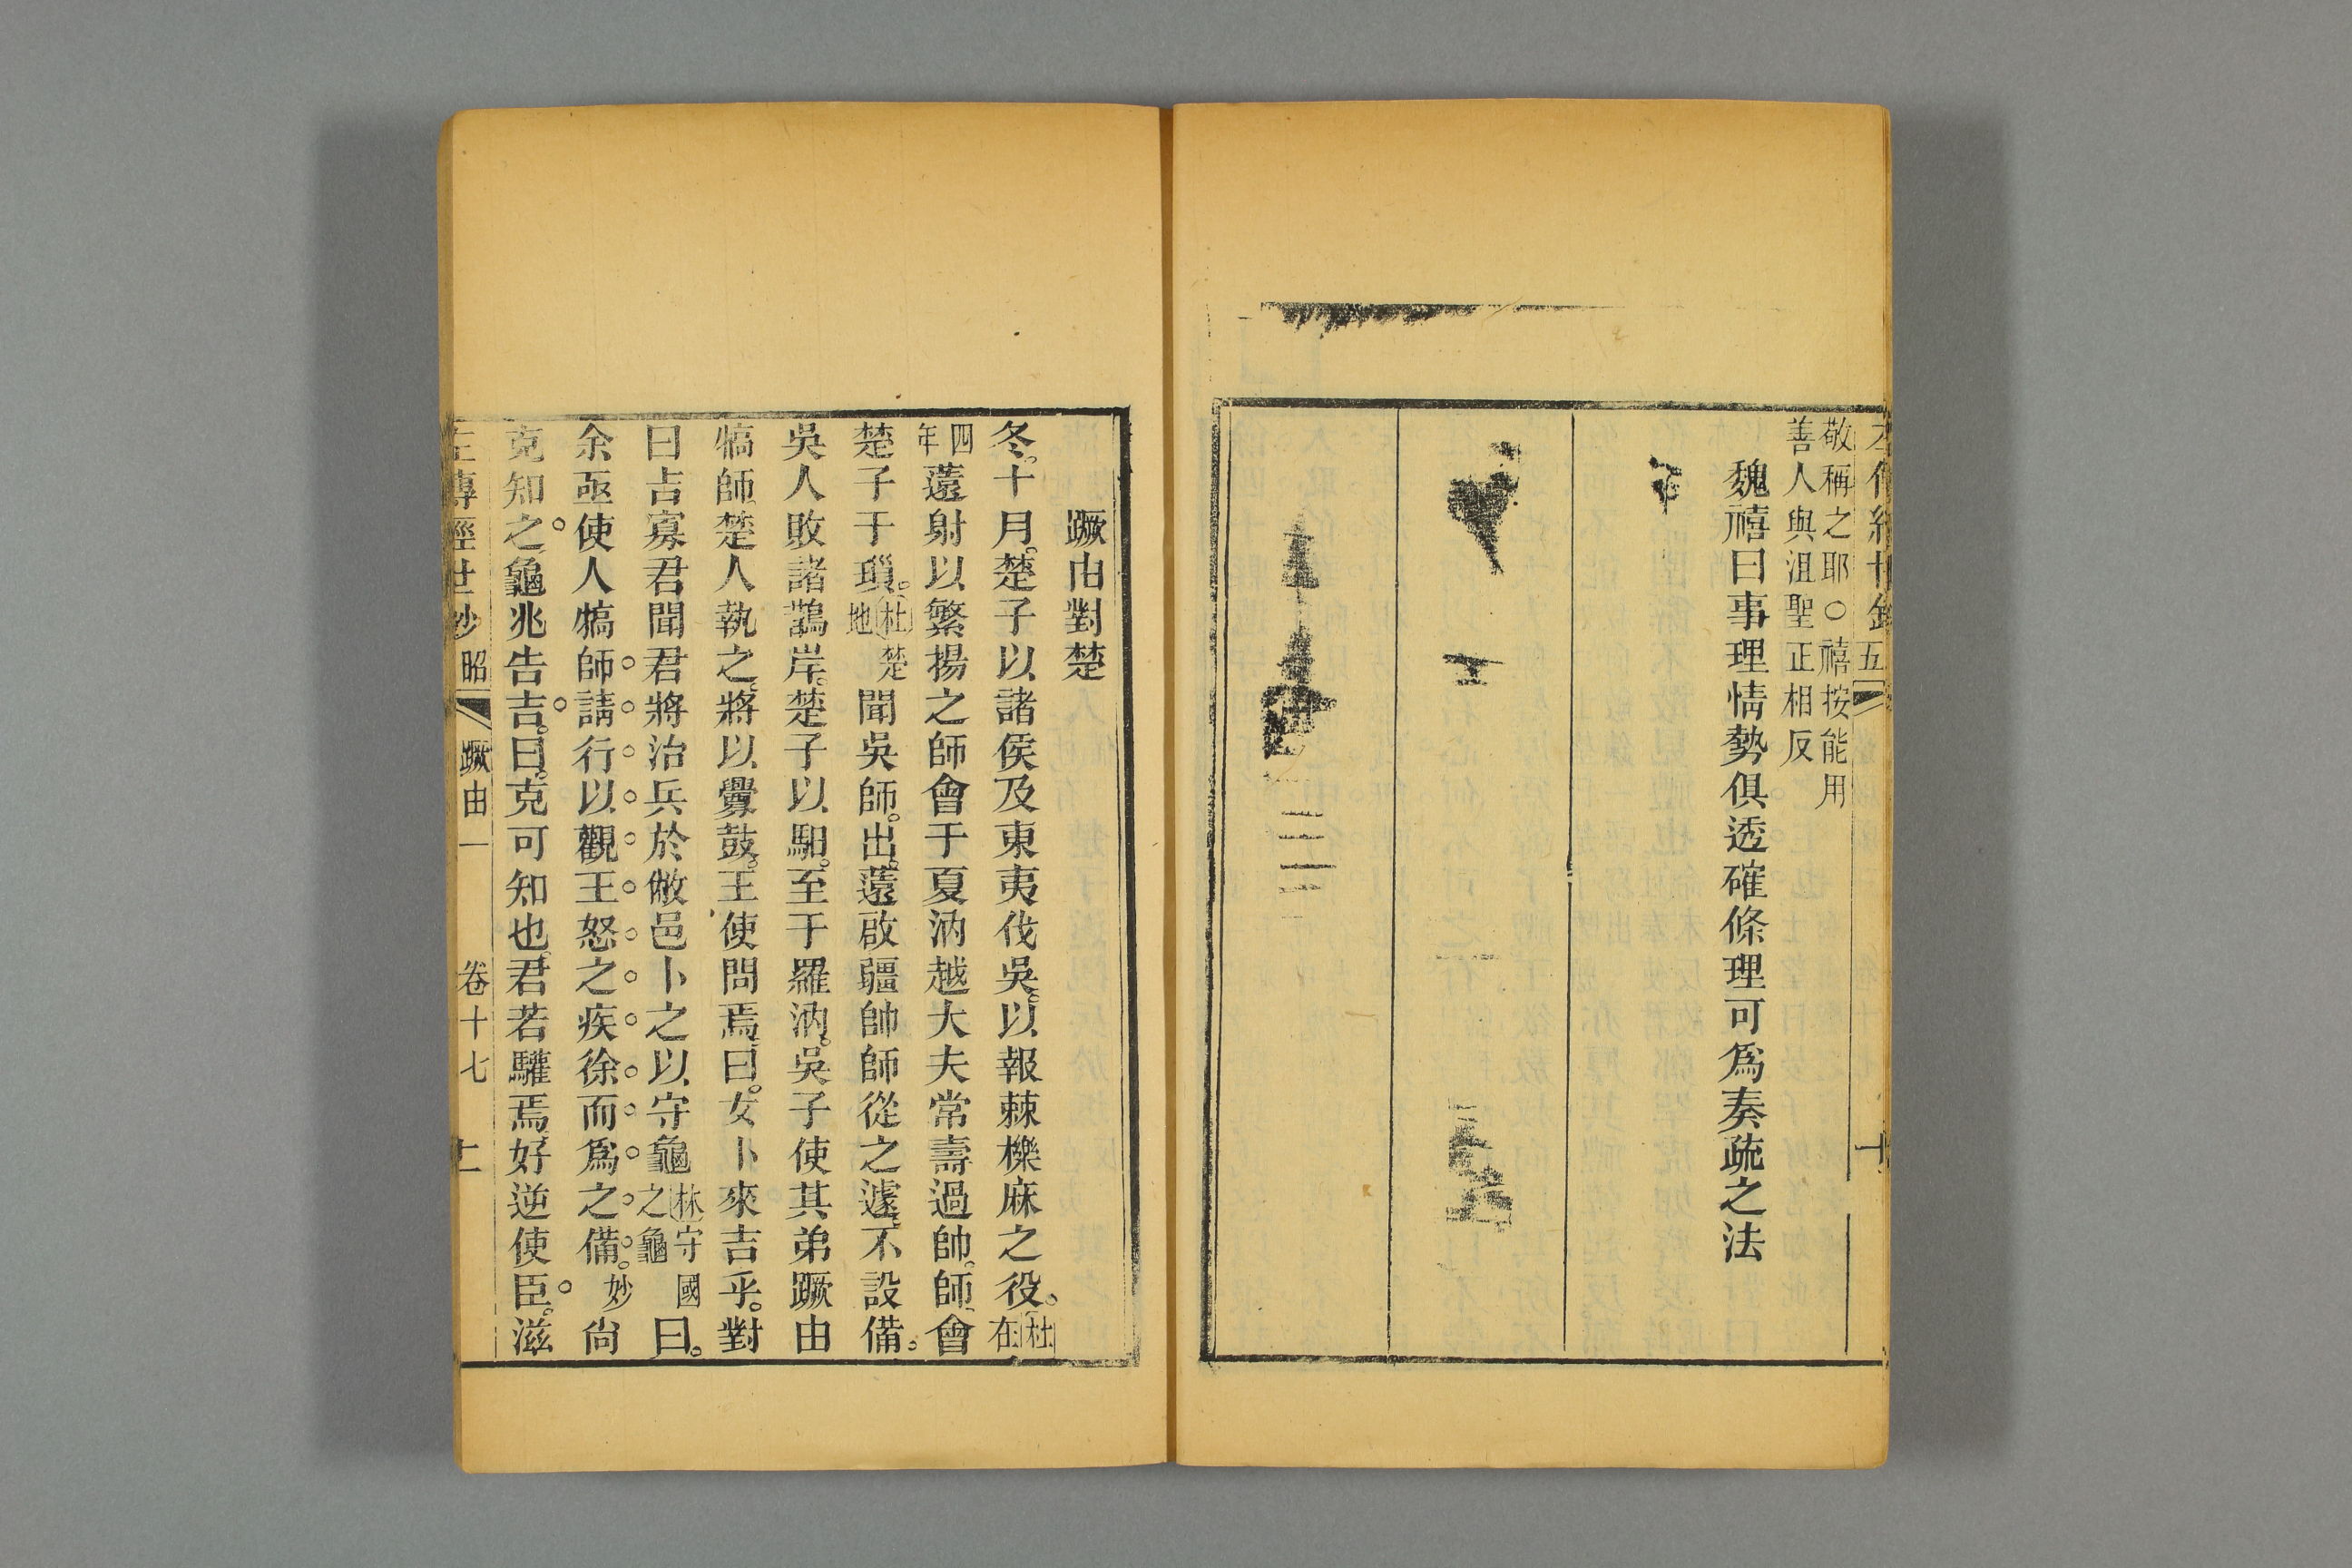 五
敬稱之耶○禧按能用
善人與沮聖正相反
魏禧曰事理情勢俱透確條理可爲奏疏之法
蹶由對楚
冬。十月。楚子以諸侯及東夷伐吳。以報棘櫟麻之役。杜在
四年薳射以繁揚之師會于夏汭越大夫常壽過帥。師會
楚子于瑣。杜楚地聞吳師。出。薳啟疆帥師從之遽。不設備。
吳人敗諸鵲岸。楚子以馹。至于羅汭。吳子使其弟蹶由
犒師。楚人執之。將以釁鼓。王使問焉。曰。女卜來吉乎。對
曰吉寡君聞君將治兵於敝邑卜之以守龜林守國之龜曰。
余亟使人犒師請行以觀王怒之疾徐而爲之備。妙尙
克知之龜兆告吉。曰。克可知也。君若驩焉。好逆使臣。滋
左傳經世鈔 昭 蹶由一 卷十七